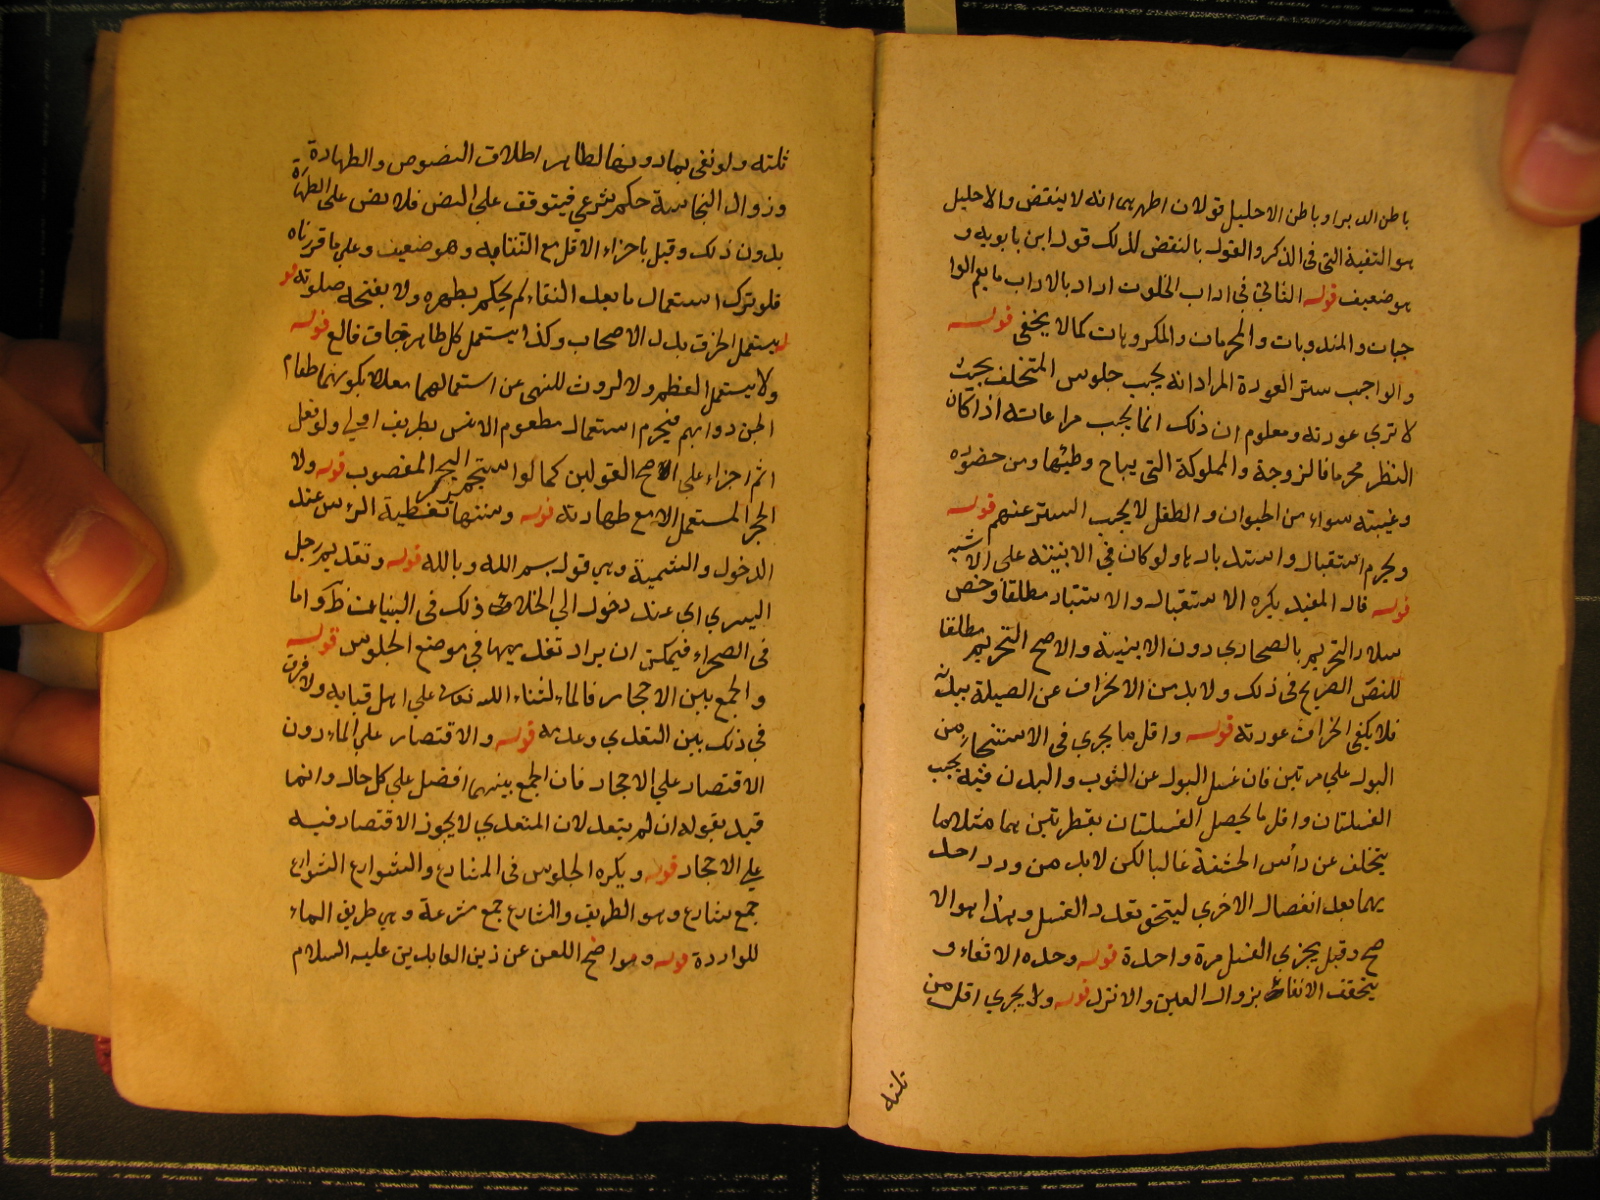 باطن الدبر او باطن الاحليل قولان اظهرهما انه لا ينقض والاحليل
هو الثقبة التي في الذكر والقول بالنقض لذلك قول ابن بابويه و
هو ضعيف قوله الثاني في اداب الخلوت اراد بالاداب ما يعم الوا
جبات والمندوبات والمحرمات والمكروهات كما لا يخفى قوله
والواجب ستر العورة المراد انه يجب جلوس المتخلف بحيث
لا ترى عورته ومعلوم ان ذلك انما يجب مراعاته اذا كان
النظر محرما فالزوجة والمملوكة التي يباح وطيئها ومن حضوره
وغيبته سواء من الحيوان والطفل لا يجب الستر عنهم قوله
ويحرم استقبال واستدبارها ولو كان في الابنية على الاشبه
قوله قال المفيد يكره الاستقبال والاستتبار مطلقا وخص
سلار التحريم بالصحاري دون الابنية والاصح التحريم مطلقا
للنص الصريح في ذلك ولا بد من الانحراف عن القبلة ببدنه
فلا يكفي انحراف عورته قوله واقل ما يجزي في الاستنجاء من
البول على مرتين فان غسل البول عن الثوب والبدن فيه يجب
الغسلتان واقل ما يحصل الغسلتان بقطرتين هما مثلا ما
يتخلف عن رائس الحشفة غالبا لكن لا بد من ورد احد
يهما بعد انفصال الاخرى ليتحقق تعدد الغسل وهذا هو الا
صح وقيل يجزي الغسل مرة واحدة قوله وحده الانقاء و
يتحقق الانقاء بزوال العين والاثر قوله ولا يجزي اقل من
ثلثه
ثلثه ولو نقى بما دونها لظاهر اطلاق النصوص والطهارة
وزوال النجاسة حكم شرعي فيتوقف على النص فلا نص على الطهارة
بدون ذلك وقيل باجزاء الاقل مع النقاء به وهو ضعيف وعلى ما قررناه
فلو ترك استعمال ما بعد النقاء لم يحكم بطهره ولا بصحة صلوته قو
له يستعمل الخزف بدل الاصحاب وكذا يستعمل كل طاهر جاف قالع قوله
ولا يستعمل العظم ولا لروث للنهى عن استعمالهما معللا بكونهما طعام
الجن دوابهم فيحرم استعمال مطعوم الانس بطريق اولى ولو فعل
اثم اجزاء على الاصح القولين كما لو استجمر بحجر المغصوب قوله ولا
الحجر المستعمل الا مع طهارته قوله وسننها تغطية الرئس عند
الدخول والتسمية وهي قول بسم الله وبالله قوله وتقديم رجل
اليسرى اى عند دخول الى الخلاء ذلك في البنيات ظ واما
في الصحراء فيمكن ان يراد تقديمها في موضع الجلوس قوله
والجمع بين الاحجار فالماء لثناء الله تعالى على اهل قبا به ولا فرق
في ذلك بين التعدي وعدمه قوله والاقتصار على الماء دون
الاقتصار على الاحجار فان الجمع بينهما افضل على كل حال وانما
قيد بقوله ان لم يتعد لان المتعدي لا يجوز الاقتصار فيه
على الاحجار قوله ويكره الجلوس في المشارع والشوارع الشوارع
جمع شارع وهو الطريق والشارع جمع شرعة وهي طريق الماء
للواردة قوله ومواضح اللعن عن زين العابدين عليه السلام